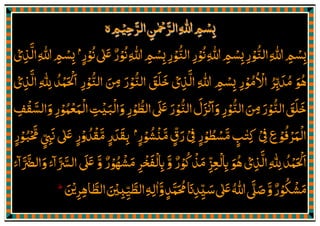 بِسْمِ اللهِ الرَّحْمٰنِ الرَّحِيْمِ ہ
بِسْمِ اللهِ النُّوْرِ بِسْمِ اللهِ نُوْرِ النُّوْرِ بِسْمِ اللهِ نُوْرٌ عَلٰى نُوْرٍ بِسْمِ اللهِ الَّذِىْ
هُوَ مُدَبِّرُ الْاُمُوْرِ بِسْمِ اللهِ الَّذِىْ خَلَقَ النُّوْرَ مِنَ النُّوْرِ اَلْحَمْدُ لِلّٰهِ الَّذِىْ
خَلَقَ النُّوْرَ مِنَ النُّوْرِ وَاَنْزَلَ النُّوْرَ عَلَى الطُّوْرِ وَالْبَيْتِ الْمَعْمُوْرِ وَالسَّقْفِ
الْمَرْفُوْعِ فِىْ كِتٰبٍ مَّسْطُوْرٍ فِىْ رَقٍّ مَّنْشُوْرٍ بِقَدَرٍ مَّقْدُوْرٍ عَلٰى نَبِىٍّ مَّحْبُوْرٍ
اَلْحَمْدُ لِلّٰهِ الَّذِىْ هُوَ بِالْعِزِّ مَذْكُوْرٌ وَّ بِالْفَخْرِ مَشْهُوْرٌ وَّ عَلَى السَّرَّآءِ وَالضَّرَّآءِ
مَشْكُوْرٌ وَّ صَلَّى اللهُ عَلٰى سَيِّدِنَا مُحَمَّدٍ وَّاٰلِهِ الطَّيِّبِيْنَ الطَّاهِرِيْنَ *